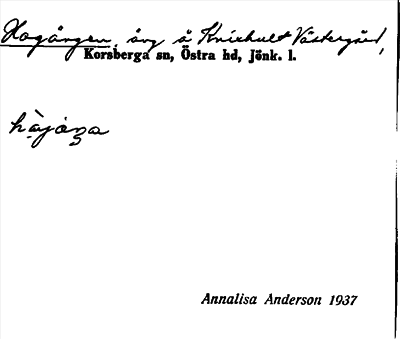 Hagången, äng å Knixhult Västergård,
Korsberga sn, Östra hd, Jönk. l.
Annalisa Anderson 1937